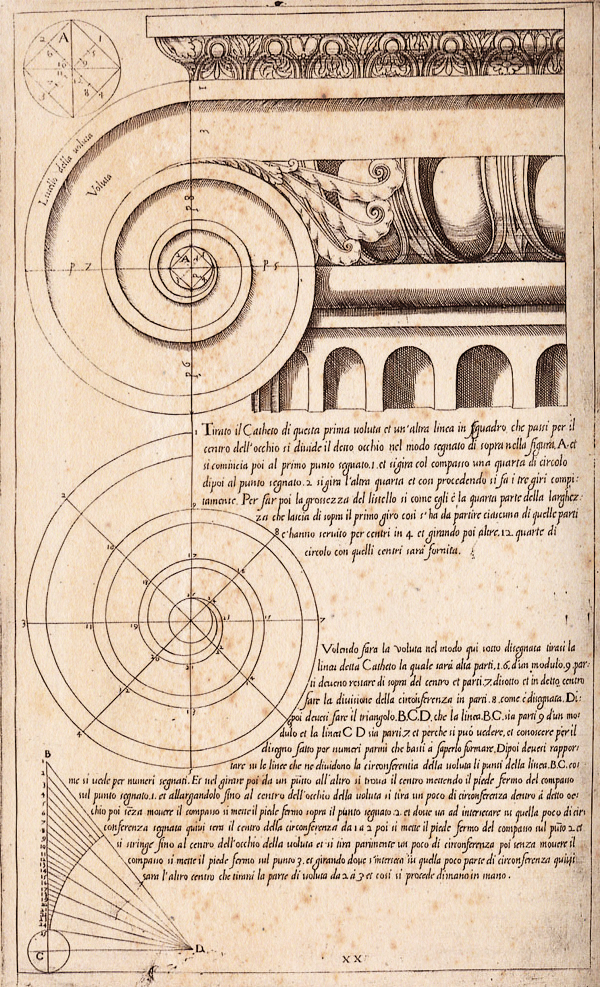 A
2
1
6
5
7
8
4
1
3
Liuello della voluta
Voluta
p 8
p. 7
A
p. 5
p 6
1 Tirato il Catheto di questa prima uoluta et un'altra linea in squadro, che passi per il
centro dell'occhio si diuide il detto occhio nel modo segnato di sopra nella figura A, et
si comincia poi al primo punto segnato .1. et si gira col compasso una quarta di circolo
dipoi al punto segnato .2 si gira l'altra quarta et cosi procedendo si fa i tre giri compi:
tamente. Per far poi la grossezza del listello si come egli è la quarta parte della larghez:
za che lascia di sopra il primo giro cosi s'ha da partire ciascuna di quelle parti
ch'hanno seruito per centri in 4. et girando poi altre .12. quarte di
circolo con quelli centri sarà fornita.
2
9
10
8
17
3
11
19
7
20
12
4
Volendo farà la uoluta nel modo qui sotto disegnata tirasi la
linea detta Catheto la quale sarà alta parti .16. d'un modulo .9 par:
ti deueno restare di sopra del centro et parti .7. disotto et in detto centro
farsi la diuisione della circonferenza in parti .8. come è disegnata. Di:
poi deuesi fare il triangolo .B.C.D. che la linea .B.C. sia parti 9 d'un mo:
dulo et la linea C D sia parti .7. et perche si può uedere, et conoscere per il
disegno fatto per numeri parmi che basti a saperlo formare. Dipoi deuesi rappor:
tare su le linee che ne diuidono la circonferentia della uoluta li punti della linea .B.C. co:
me si uede per numeri segnati. Et nel girare poi da un pūto all'altro si troua il centro mettendo il piede fermo del compasso
sul punto segnato .1. et allargandolo fino al centro dell'occhio della uoluta si tira un poco di circonferenza dentro à detto oc:
chio poi sēza mouere il compasso si mette il piede fermo sopra il punto segnato .2. et doue ua ad intersecare su quella poco di cir:
conferenza segnata quiui uerrà il centro della circonferenza da 1 a 2 poi si mette il piede fermo del compasso sul pūto 2. et
si stringe fino al centro dell'occhio della uoluta et si tira parimente un poco di circonferenza poi senza mouere il
compasso si mette il piede fermo sul punto 3. et girando doue s'interseca su quella poco parte di circonferenza quiui
sarà l'altro centro che tirarà la parte di uoluta da 2 à 3 et cosi si procede di mano in mano.
B
C
D
XX